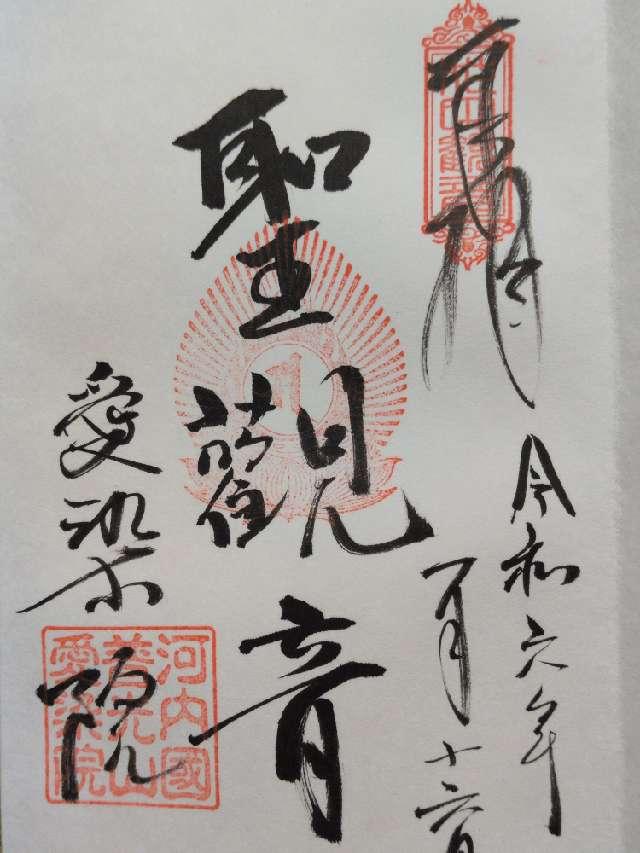 奉拝
令和六年
一月十六日
聖觀音
愛染院
河内國
善光山
愛染院